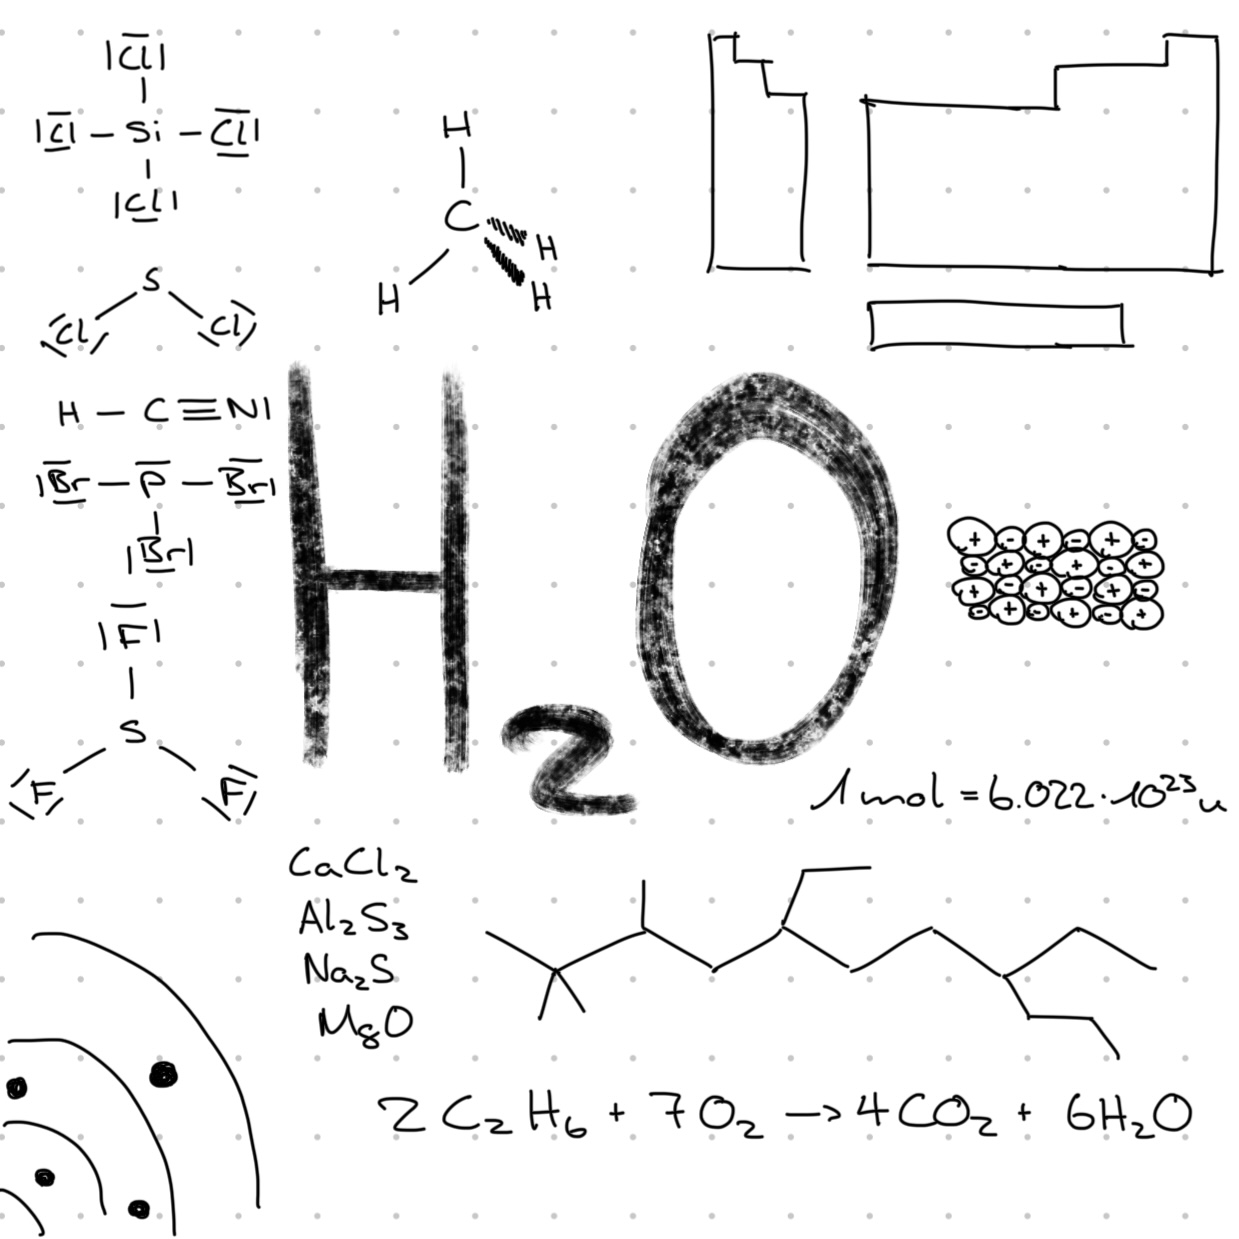 Cl
Cl – Si – Cl
Cl
S
Cl Cl
H – C ≡ N
Br – P – Br
Br
F
S
F F
H
C
H
H
H
H₂O
+ - + - + -
- + - + - +
+ - + - + -
- + - + - +
1 mol = 6.022 · 10²³ u
CaCl₂
Al₂S₃
Na₂S
MgO
2 C₂H₆ + 7 O₂ → 4 CO₂ + 6 H₂O